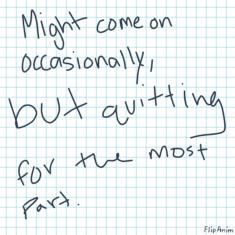 Might come on
occasionally,
but quitting
for the most
part.
FlipAnim